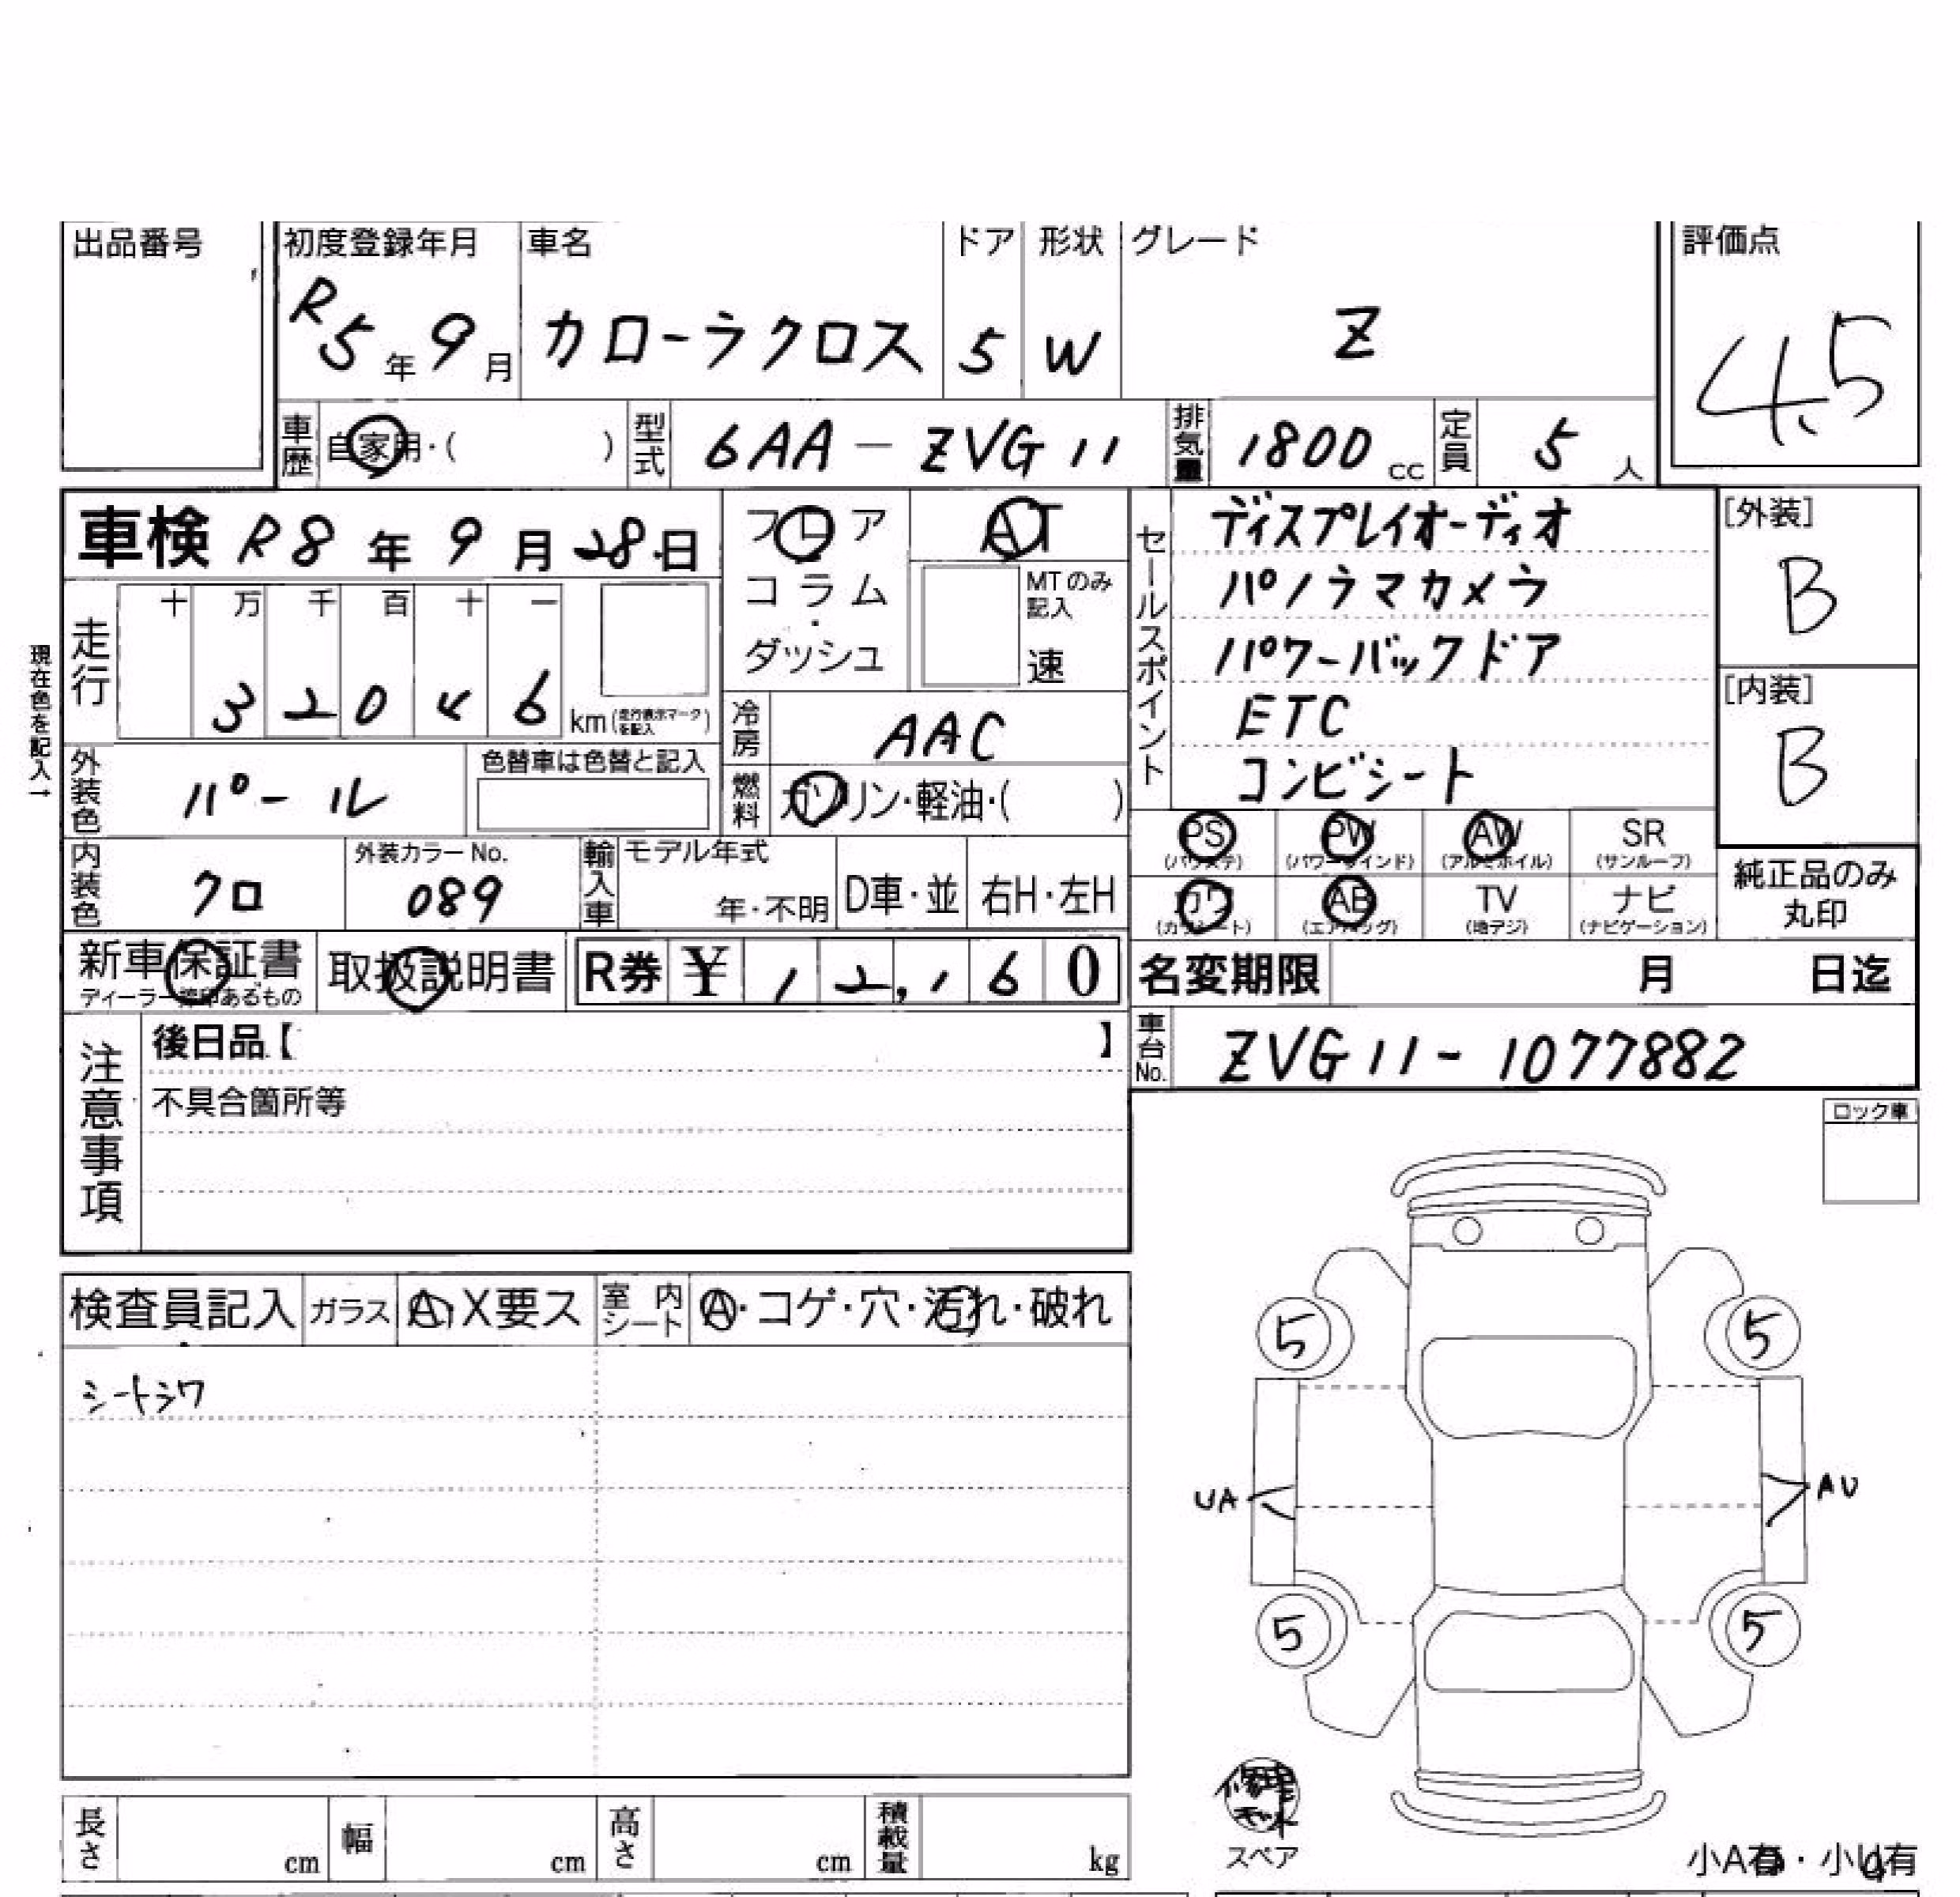 出品番号
初度登録年月 R5年9月
車名 カローラクロス
ドア 5
形状 W
グレード Z
評価点 4.5
車歴 自家用・( )
型式 6AA-ZVG11
排気量 1800cc
定員 5人
車検 R8年9月28日
フロア
コラム
ダッシュ
AT
MTのみ記入
速
セールスポイント
ディスプレイオーディオ
パノラマカメラ
パワーバックドア
ETC
コンビシート
[外装]
B
[内装]
B
現在色を記入→
走行 十 万 千 百 十 一
3 2 0 4 6 km (走行表示マークを記入)
冷房 AAC
外装色 パール
色替車は色替と記入
燃料 ガソリン・軽油・( )
PS (パワステ) PW (パワーウインド) AW (アルミホイル) SR (サンルーフ)
カワ (カワシート) AB (エアバッグ) TV (地デジ) ナビ (ナビゲーション)
純正品のみ丸印
内装色 クロ
外装カラーNo. 089
輸入車 モデル年式 年・不明
D車・並
右H・左H
新車保証書
ディーラー等印あるもの
取扱説明書
R券 ¥ 12,160
名変期限 月 日迄
車台No. ZVG11-1077882
注意事項
後日品【 】
不具合箇所等
ロック車
検査員記入 ガラス A・X要ス 室内シート A・コゲ・穴・汚れ・破れ
シートシワ
5 5
UA AU
5 5
修理キット
スペア
長さ cm 幅 cm 高さ cm 積載量 kg
小A有・小U有